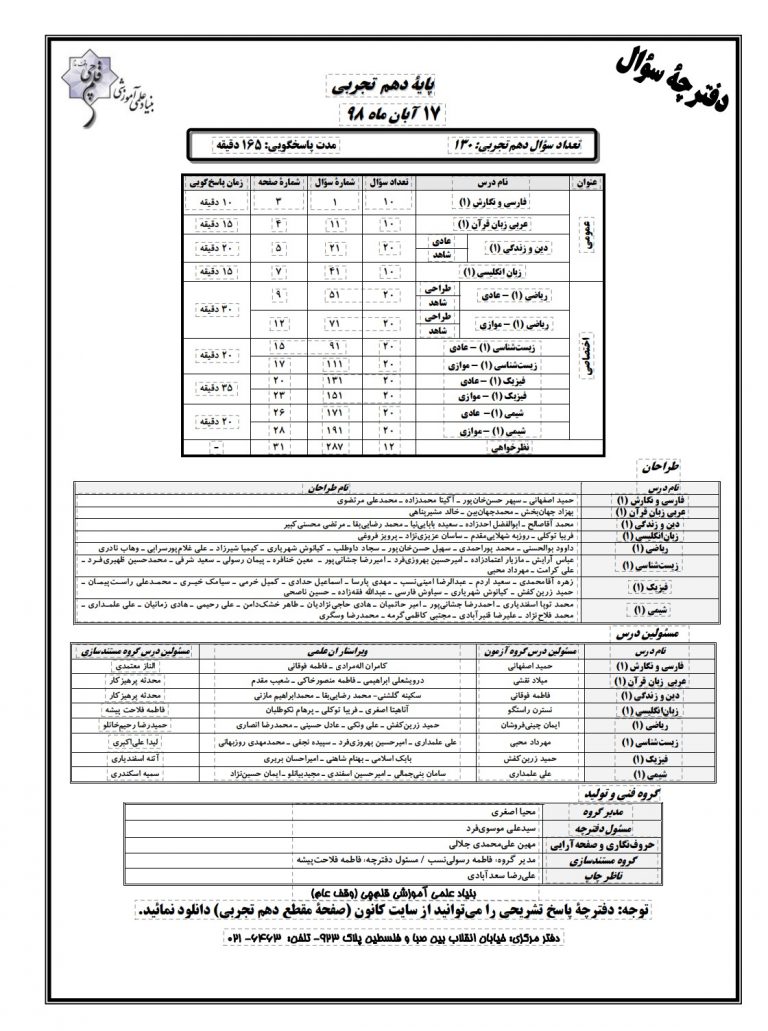 دفترچهٔ سؤال
بنیاد علمی آموزشی قلم‌چی
پایهٔ دهم تجربی
۱۷ آبان ماه ۹۸
تعداد سؤال دهم تجربی: ۱۳۰ مدت پاسخگویی: ۱۶۵ دقیقه
عنوان نام درس تعداد سؤال شمارهٔ سؤال شمارهٔ صفحه زمان پاسخ‌گویی
عمومی
فارسی و نگارش (۱) ۱۰ ۱ ۳ ۱۰ دقیقه
عربی زبان قرآن (۱) ۱۰ ۱۱ ۴ ۱۵ دقیقه
دین و زندگی (۱) عادی شاهد ۲۰ ۲۱ ۵ ۲۰ دقیقه
زبان انگلیسی (۱) ۱۰ ۴۱ ۷ ۱۵ دقیقه
اختصاصی
ریاضی (۱) – عادی طراحی شاهد ۲۰ ۵۱ ۹ ۳۰ دقیقه
ریاضی (۱) – موازی طراحی شاهد ۲۰ ۷۱ ۱۲
زیست‌شناسی (۱) – عادی ۲۰ ۹۱ ۱۵ ۲۰ دقیقه
زیست‌شناسی (۱) – موازی ۲۰ ۱۱۱ ۱۷
فیزیک (۱) – عادی ۲۰ ۱۳۱ ۲۰ ۳۵ دقیقه
فیزیک (۱) – موازی ۲۰ ۱۵۱ ۲۳
شیمی (۱)– عادی ۲۰ ۱۷۱ ۲۶ ۲۰ دقیقه
شیمی (۱)–موازی ۲۰ ۱۹۱ ۲۸
نظرخواهی ۱۲ ۲۸۷ ۳۱ –
طراحان
نام درس نام طراحان
فارسی و نگارش (۱) حمید اصفهانی ـ سپهر حسن‌خان‌پور ـ آگیتا محمدزاده ـ محمدعلی مرتضوی
عربی زبان قرآن (۱) بهزاد جهان‌بخش ـ محمدجهان‌بین ـ خالد مشیرپناهی
دین و زندگی (۱) محمد آقاصالح ـ ابوالفضل احدزاده ـ سعیده بابایی‌نیا ـ محمد رضایی‌بقا ـ مرتضی محسنی‌کبیر
زبان‌انگلیسی (۱) فریبا توکلی ـ روزبه شهلایی‌مقدم ـ ساسان عزیزی‌نژاد ـ پرویز فروغی
ریاضی (۱) داوود بوالحسنی ـ محمد پوراحمدی ـ سهیل حسن‌خان‌پور ـ سجاد داوطلب ـ کیانوش شهریاری ـ کیمیا شیرزاد ـ علی غلام‌پورسرابی ـ وهاب نادری
زیست‌شناسی (۱) عباس آرایش ـ مازیار اعتمادزاده ـ امیرحسین بهروزی‌فرد ـ امیررضا جشانی‌پور ـ معین خنافره ـ پیمان رسولی ـ سعید شرفی ـ محمدحسین ظهیری‌فرد ـ
علی کرامت ـ مهرداد محبی
فیزیک (۱) زهره آقامحمدی ـ سعید اردم ـ عبدالرضا امینی‌نسب ـ مهدی پارسا ـ اسماعیل حدادی ـ کمیل خرمی ـ سیامک خیری ـ محمدعلی راست‌پیمان ـ
حمید زرین کفش ـ کیانوش شهریاری ـ سیاوش فارسی ـ عبدالله فقه‌زاده ـ حسین ناصحی
شیمی (۱) محمد توبا اسفندیاری ـ احمدرضا جشانی‌پور ـ امیر حاتمیان ـ هادی حاجی‌نژادیان ـ طاهر خشک‌دامن ـ علی رحیمی ـ هادی زمانیان ـ علی علمداری ـ
محمد فلاح‌نژاد ـ علیرضا قنبرآبادی ـ مجتبی کاظمی‌گرمه ـ محمدرضا وسگری
مسئولین درس
نام درس مسئولین درس گروه آزمون ویراستاران‌علمی مسئولین درس گروه مستندسازی
فارسی و نگارش (۱) حمید اصفهانی کامران اله‌مرادی ـ فاطمه فوقانی الناز معتمدی
عربی زبان قرآن (۱) میلاد نقشی درویشعلی ابراهیمی ـ فاطمه منصورخاکی ـ شعیب مقدم محدثه پرهیزکار
دین و زندگی (۱) فاطمه فوقانی سکینه گلشنی- محمد رضایی‌بقا ـ محمدابراهیم مازنی محدثه پرهیزکار
زبان‌انگلیسی (۱) نسترن راستگو آناهیتا اصغری ـ فریبا توکلی ـ پرهام نکوطلبان فاطمه فلاحت پیشه
ریاضی (۱) ایمان چینی‌فروشان حمید زرین‌کفش ـ علی ونکی ـ عادل حسینی ـ محمدرضا انصاری حمیدرضا رحیم‌خانلو
زیست‌شناسی (۱) مهرداد محبی علی علمداری ـ امیرحسین بهروزی‌فرد ـ سپیده نجفی ـ محمدمهدی روزبهانی لیدا علی‌اکبری
فیزیک (۱) حمید زرین‌کفش بابک اسلامی ـ بهنام شاهنی ـ امیراحسان بربری آتنه اسفندیاری
شیمی (۱) علی علمداری سامان بنی‌جمالی ـ امیرحسین اسفندی ـ مجیدبیانلو ـ ایمان حسین‌نژاد سمیه اسکندری
گروه فنی و تولید
مدیر گروه محیا اصغری
مسئول دفترچه سیدعلی موسوی‌فرد
حروف‌نگاری و صفحه‌آرایی مهین علی‌محمدی جلالی
گروه مستندسازی مدیر گروه: فاطمه رسولی‌نسب / مسئول دفترچه: فاطمه فلاحت‌پیشه
ناظر چاپ علی‌رضا سعدآبادی
بنیاد علمی آموزشی قلم‌چی (وقف عام)
توجه: دفترچهٔ پاسخ تشریحی را می‌توانید از سایت کانون (صفحهٔ مقطع دهم تجربی) دانلود نمائید.
دفتر مرکزی: خیابان انقلاب بین صبا و فلسطین پلاک ۹۲۳– تلفن: ۶۴۶۳–۰۲۱